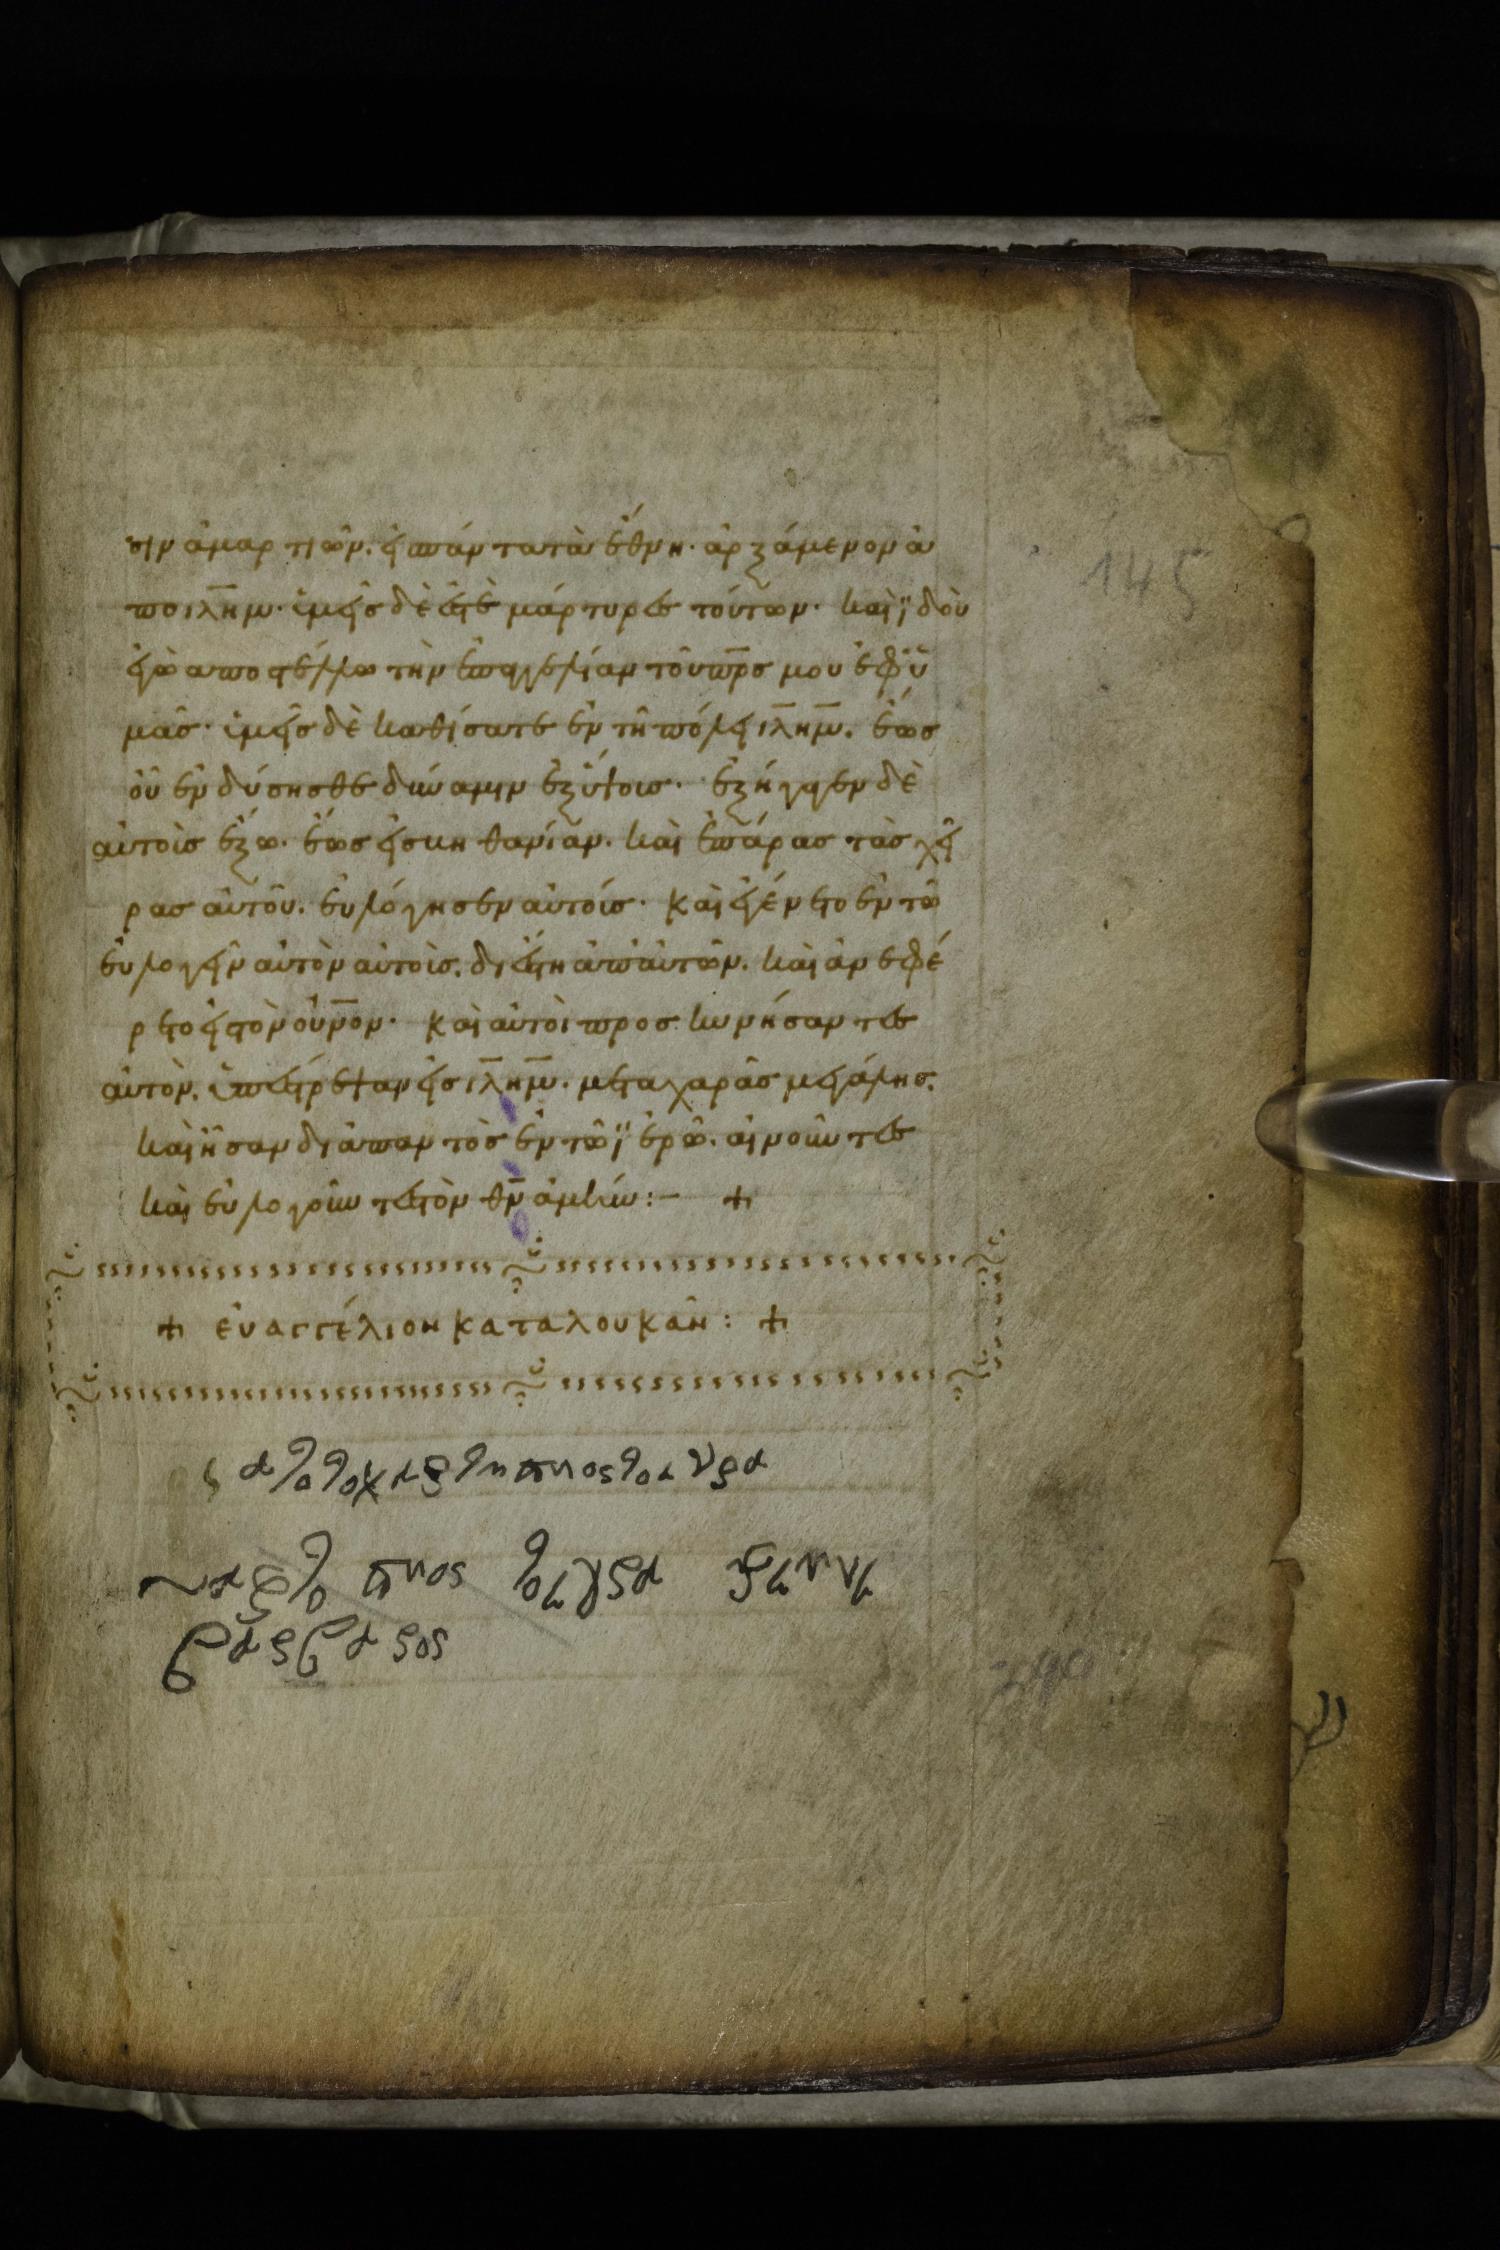 σιν ἁμαρτιῶν. εἰς πάντα τὰ ἔθνη· ἀρξάμενον ἀ
πὸ ιλ̅η̅μ· ὑμεῖς δέ ἐστε μάρτυρες τούτων· καὶ ϊδοὺ
ἐγὼ ἀποστέλλω τὴν ἐπαγγελίαν τοῦ π̅ρ̅σ μου ἐφ ὑ
μᾶς· ὑμεῖς δὲ καθίσατε ἐν τῆ πόλει ιλ̅η̅μ̅. ἕως
οὗ ἐνδύσησθε δύναμιν ἐξ ὕψους· ἐξήγαγεν δὲ
αὐτοὺς ἔξω. ἕως εἰς βηθανίαν. καὶ ἐπάρας τὰς χεῖ
ρας αὐτοῦ. εὐλόγησεν αὐτούς· καὶ ἐγένετο ἐν τῶ
εὐλογεῖν αὐτὸν αὐτοὺς. διέστη ἀπ αὐτῶν. καὶ ἀνεφέ
ρετο εἰς τὸν οὐ̅ν̅ον· καὶ αὐτοὶ προσκυνήσαντες
αὐτὸν. ὑπέστρεψαν εἰς ιλ̅η̅μ̅. μετὰ χαρᾶς μεγάλης.
καὶ ἦσαν διὰ παντὸς ἐν τῶ ϊερῶ. αἰνοῦντες
καὶ εὐλογοῦντες τὸν θ̅ν̅ ἀμήν:– +
+ εὐαγγέλιον κατὰ λουκᾶν: +
145